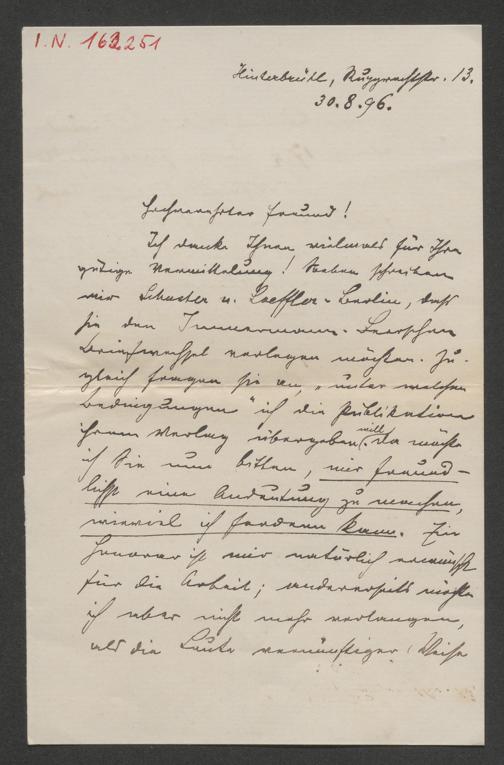 I. N. 163.251
Hinterbrühl, Ruggrechtstr. 13.
30.8.96.
Hochverehrter Freund!
Ich danke Ihnen vielmals für Ihre
gütige Vermittelung! Soeben schreiben
mir Schuster u. Loeffler-Berlin, daß
sie den Immermann-Beerschen
Briefwechsel verlegen möchten. Zu-
gleich fragen sie an, „unter welchen
Bedingungen" ich die Publikation
ihrem Verlag übergeben will. Da möchte
ich Sie nun bitten, mir freund-
lichst eine Andeutung zu machen,
wieviel ich fordern kann. Ein
Honorar ist mir natürlich erwünscht
für die Arbeit; andererseits möchte
ich aber nicht mehr verlangen,
als die Leute vernünftiger Weise